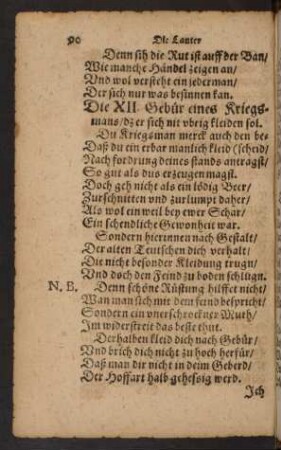 90 Die Lauter
Denn sih die Rut ist auff der Ban/
Wie manche Händel zeigen an/
Vnd wol versteht ein jederman/
Der sich nur was besinnen kan.
Die XII. Gebür eines Kriegs-
mans/ dz er sich nit vbrig kleiden sol.
Du Kriegsman merck auch den be-
Daß du ein erbar manlich kleid (scheid/
Nach fordrung deines stands antragst/
So gut als dus erzeugen magst.
Doch geh nicht als ein lödig Beer/
Zurschnitten vnd zurlumpt daher/
Als wol ein weil bey ewer Schar/
Ein schendliche Gewonheit war.
Sondern hierinnen nach Gestalt/
Der alten Teutschen dich verhalt/
Die nicht besonder Kleidung trugn/
Vnd doch den Feind zu boden schlugn.
N. B. Denn schöne Rüstung hilfft nicht/
Wan man sich mit dem feind bespricht/
Sondern ein vnerschrockner Muth/
Im widerstreit das beste thut.
Derhalben kleid dich nach Gebür/
Vnd brich dich nicht zu hoch herfür/
Daß man dir nicht in deim Geberd/
Der Hoffart halb gehessig werd.
Ich